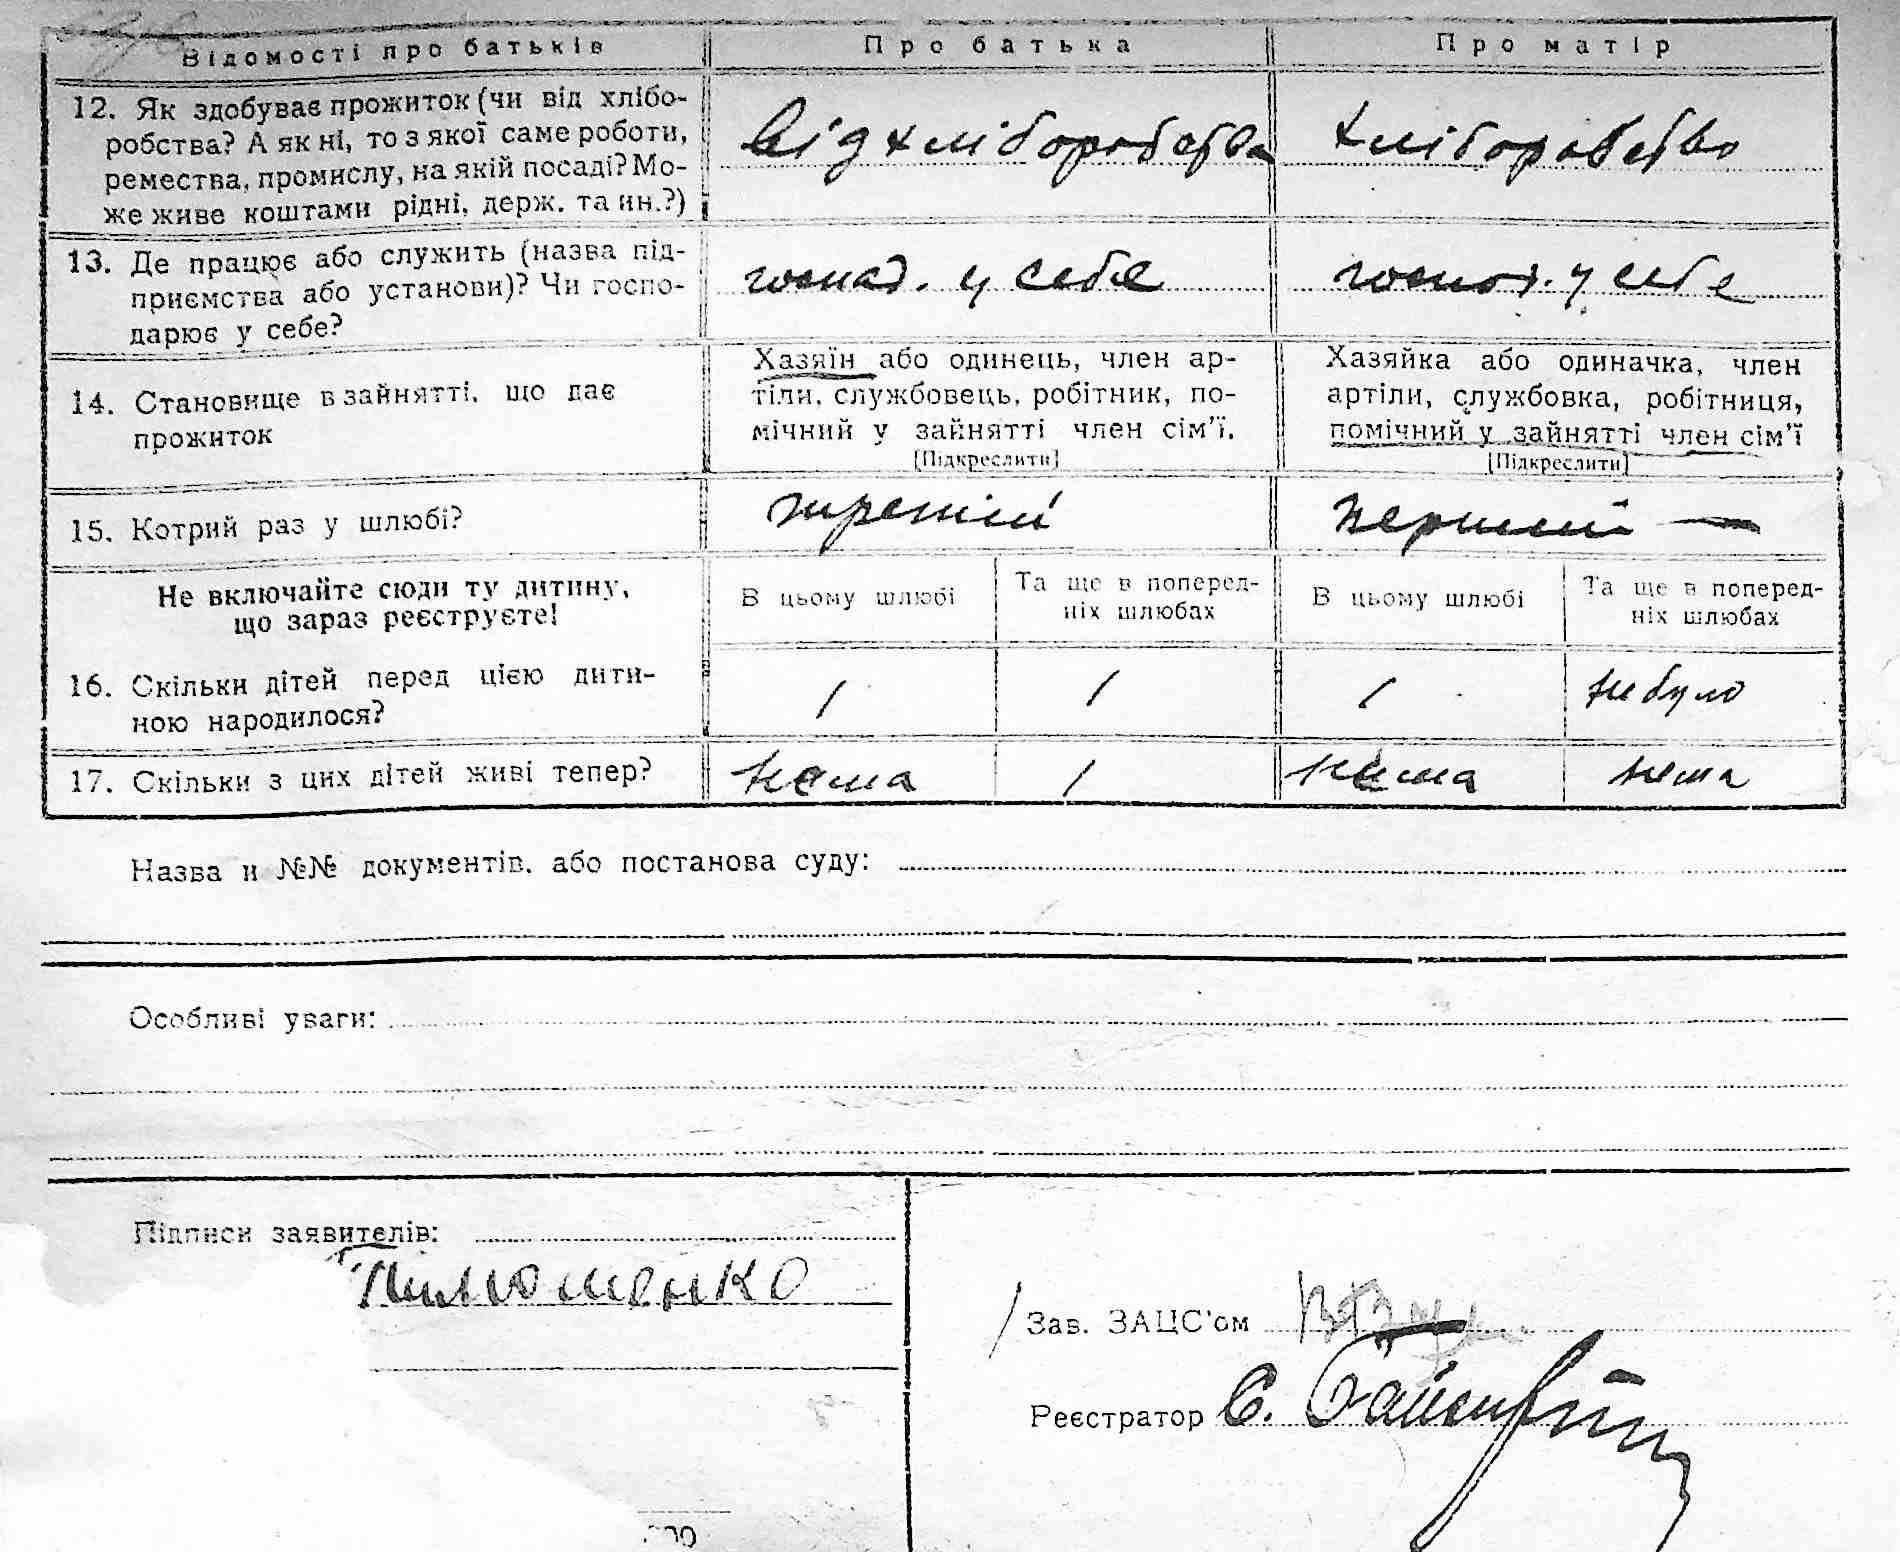 Відомості про батьків
Про батька
Про матір
12. Як здобуває прожиток (чи від хлібо-
робства? А як ні, то з якої саме роботи,
ремества, промислу, на якій посаді? Мо-
же живе коштами рідні, держ. та ин.?)
від хліборобства
хліборобство
13. Де працює або служить (назва під-
приємства або установи)? Чи госпо-
дарює у себе?
господ. у себе
господ. у себе
14. Становище в зайнятті, що дає
прожиток
Хазяїн або одинець, член ар-
тіли, службовець, робітник, по-
мічний у зайнятті член сім'ї.
[Підкреслити]
Хазяйка або одиначка, член
артіли, службовка, робітниця,
помічний у зайнятті член сім'ї
[Підкреслити]
15. Котрий раз у шлюбі?
третій
перший —
Не включайте сюди ту дитину,
що зараз реєструєте!
В цьому шлюбі
Та ще в поперед-
ніх шлюбах
В цьому шлюбі
Та ще в поперед-
ніх шлюбах
16. Скільки дітей перед цією дити-
ною народилося?
1
1
1
не було
17. Скільки з цих дітей живі тепер?
нема
1
нема
нема
Назва и №№ документів, або постанова суду:
Особливі уваги:
Підписи заявителів:
Зав. ЗАЦС'ом
Реєстратор С.